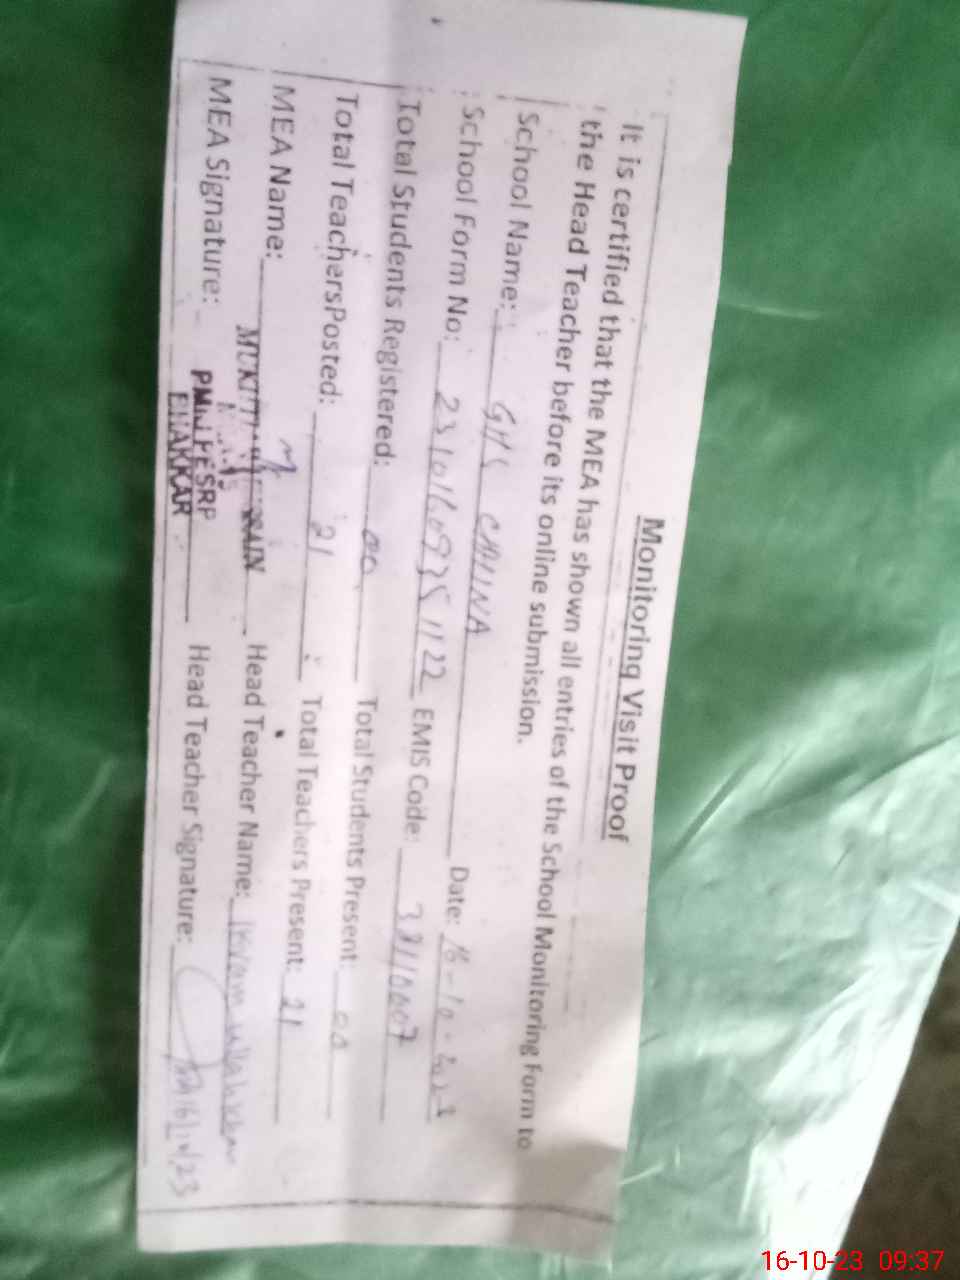 Monitoring Visit Proof
It is certified that the MEA has shown all entries of the School Monitoring Form to
the Head Teacher before its online submission.
School Name: GHS CHINA Date: 16-10-2023
School Form No: 23101609351122 EMIS Code: 38110007
Total Students Registered: 00 Total Students Present: 00
Total TeachersPosted: 21 Total Teachers Present: 21
MEA Name: Head Teacher Name: Ikram ullah khan
MEA Signature: PMIU PESRP Head Teacher Signature: 16/10/23
BHAKKAR
16-10-23 09:37